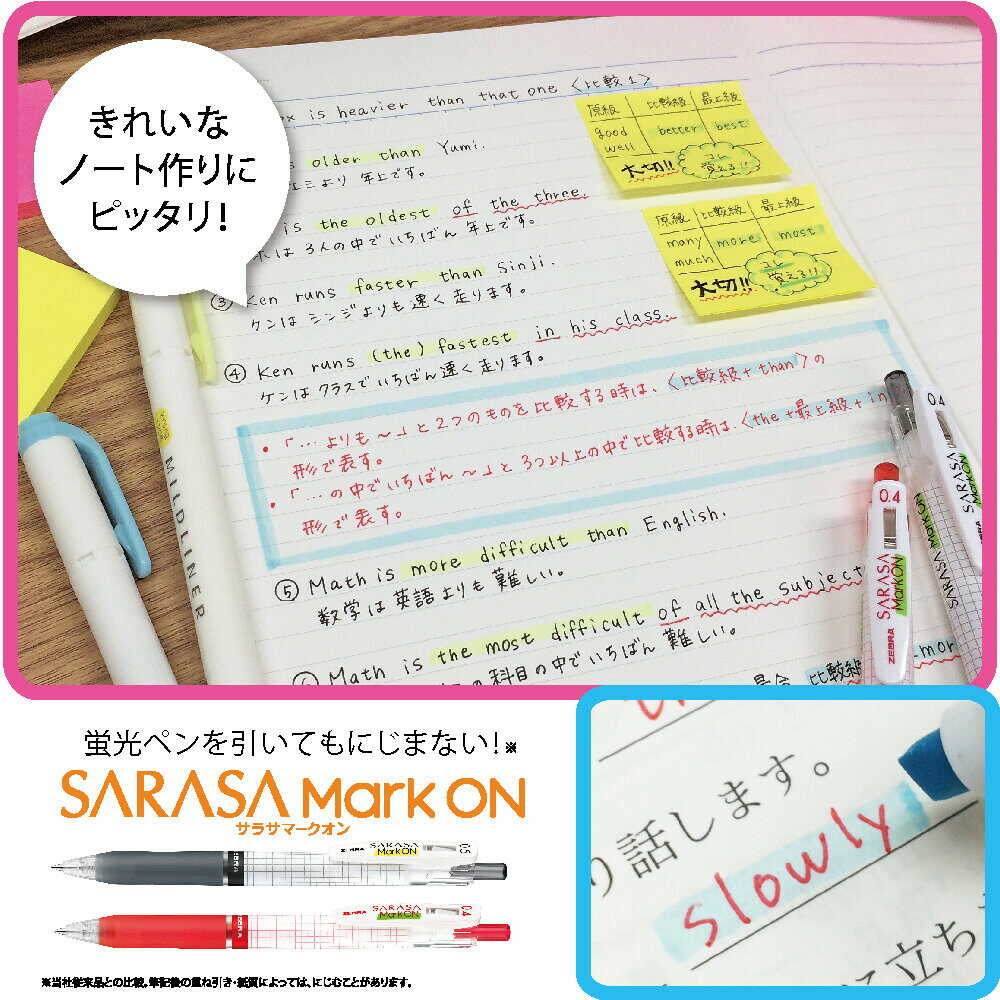 きれいな
ノート作りに
ピッタリ!
is heavier than that one 〈比較1〉
older than Yumi.
より 年上です。
is the oldest of the three.
は 3人の中でいちばん 年上です。
③ Ken runs faster than Sinji.
ケンは シンジよりも 速く 走ります。
④ Ken runs (the) fastest in his class.
ケンは クラスでいちばん 速く 走ります。
原級 比較級 最上級
good better best
well
大切!! コレ
覚える!!
原級 比較級 最上級
many more most
much
大切!! コレ
覚える!!
・「…よりも〜」と2つのものを比較する時は、〈比較級+than〉の
形で表す。
・「…の中でいちばん〜」と3つ以上の中で比較する時は、〈the+最上級+in
形で表す。
⑤ Math is more difficult than English.
数学は英語よりも難しい。
Math is the most difficult of all the subject
の科目の中でいちばん 難しい。
比較級 more
MILDLINER
0.4
SARASA
MarkON
ZEBRA
0.4
SARASA MarkON
SARASA MarkON
蛍光ペンを引いてもにじまない!※
SARASA Mark ON
サラサマークオン
ZEBRA SARASA
MarkON 0.5
ZEBRA SARASA
MarkON 0.4
※当社従来品との比較。筆記後の重ね引き・紙質によっては、にじむことがあります。
り話します。
slowly
に立ち